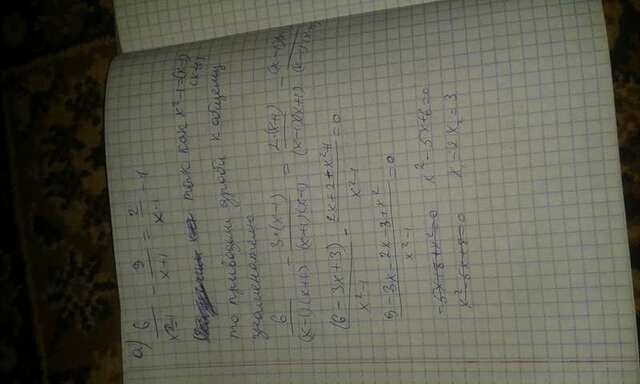 а) 6/(x²-1) - 3/(x+1) = 2/(x-1) - 1
так как x²-1=(x-1)
(x+1)
то приводим дроби к общему
знаменателю
6/((x-1)(x+1)) - 3·(x-1)/((x+1)(x-1)) = 2·(x+1)/((x-1)(x+1)) -
(6-3x+3)/(x²-1) - 2x+2-x²+1/(x²-1) =0
9-3x-2x-3+x²/(x²-1) =0
-5x+8+x²=0 x²-5x+6=0
x²-5x+8=0 x=2 x₂=3